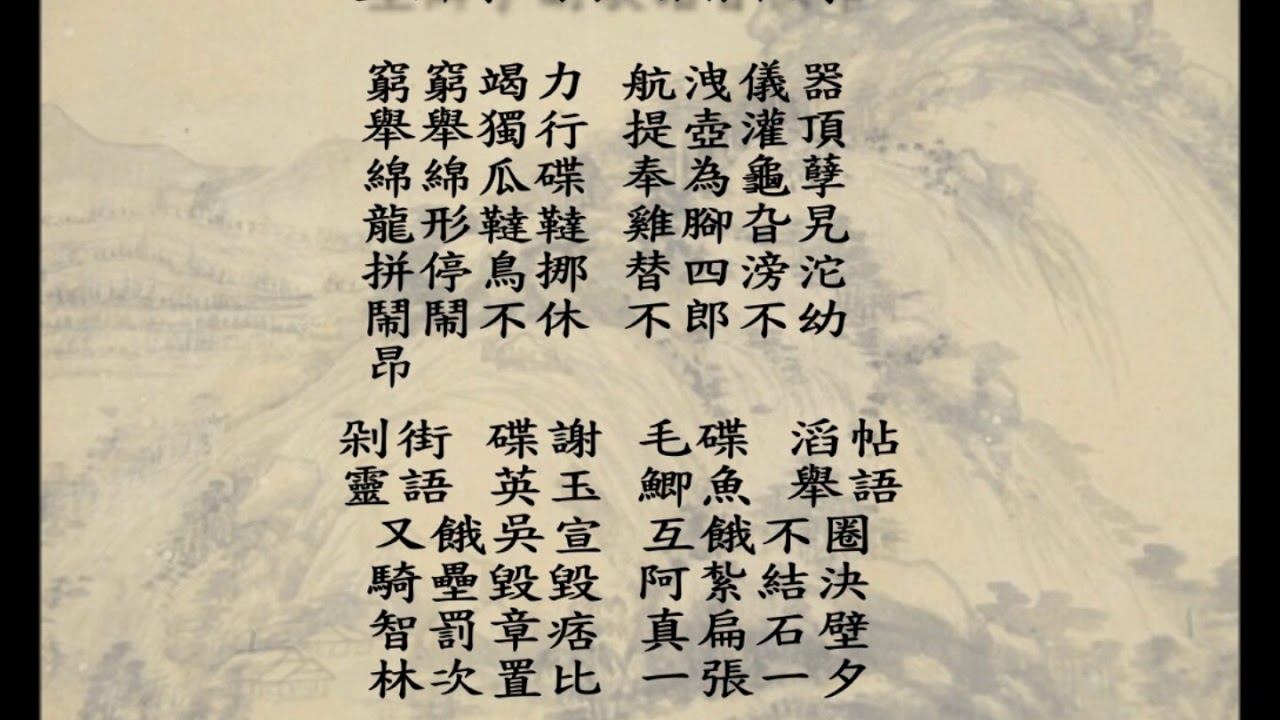 窮窮竭力 航洩儀器
舉舉獨行 提壺灌頂
綿綿瓜碟 奉為龜孽
龍形韃韃 雞腳旮旯
拼停鳥挪 替四滂沱
鬧鬧不休 不郎不幼
昂
剁街 碟謝 毛碟 滔帖
靈語 英玉 鯽魚 舉語
又餓吳宣 互餓不圈
騎壘毀毀 阿紮結決
智罰章痞 真扁石壁
林次置比 一張一夕